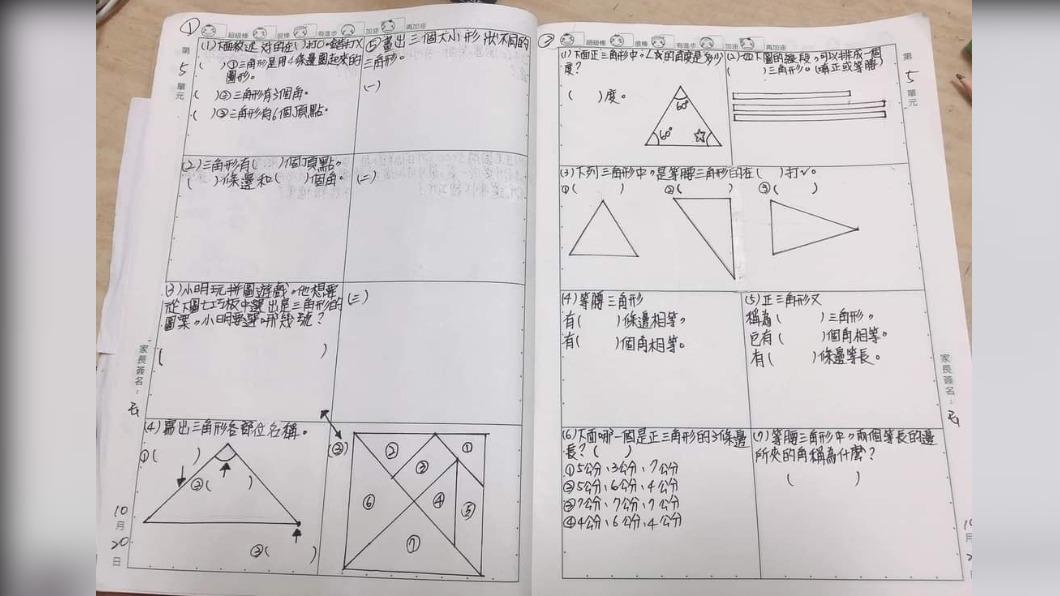 ①
超級棒
很棒
有進步
加油
再加油
第5單元
(1)下面敘述對的在( )打○,錯打X
( )①三角形是用4條邊圍起來的
圖形。
( )②三角形有3個角。
( )③三角形有6個頂點。
(2)三角形有( )個頂點。
( )條邊和( )個角。
(3)小明玩拼圖遊戲。他想要
從下圖七巧板中選出是三角形的
圖案。小明要選哪幾號?
( )
(4)寫出三角形各部位名稱。
①( )
②( )
③( )
家長簽名:
10月20日
(5)畫出三個大小形狀不同的
三角形。
(一)
(二)
(三)
②
①
③
③
④
⑥
⑤
⑦
②
超級棒
很棒
有進步
加油
再加油
第5單元
(1)下面正三角形中,∠☆的角度是多少
度?
( )度。
60°
60°
☆
(2)如下圖的線段,可以排成一個
( )三角形。(填正或等腰)
(3)下列三角形中,是等腰三角形的在( )打✓。
①( )
②( )
③( )
(4)等腰三角形
有( )條邊相等,
有( )個角相等。
(5)正三角形又
稱為( )三角形。
它有( )個角相等。
有( )條邊等長。
(6)下面哪一個是正三角形的3條邊
長?( )
①5公分、3公分、7公分
②5公分、6公分、4公分
③7公分、7公分、7公分
④4公分、6公分、4公分
(7)等腰三角形中,兩個等長的邊
所夾的角稱為什麼?
( )
家長簽名: